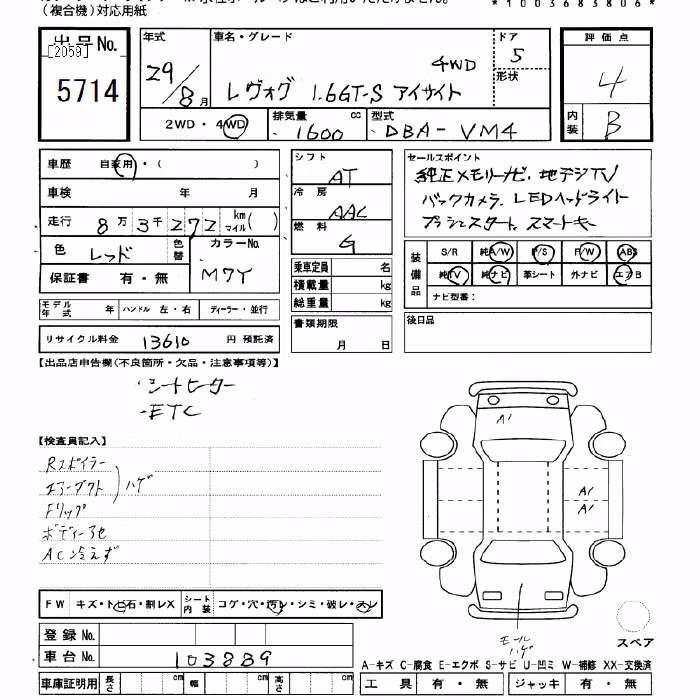 (複合機)対応用紙
*1003683806*
出品No.
[2059]
5714
年式
29/8月
車名・グレード
4WD
レヴォグ 1.6GT-S アイサイト
ドア
5
形状
2WD・4WD
排気量
1600 cc
型式
DBA-VM4
評価点
4
内装
B
車歴 自家用・( )
車検 年 月
走行 8万3千272 km マイル( )
色 レッド
色替
カラーNo.
M7Y
保証書 有・無
モデル年式 年 ハンドル 左・右 ディーラー・並行
リサイクル料金 13610 円 預託済
シフト
AT
冷房
AAC
燃料
G
乗車定員 名
積載量 kg
総重量 kg
書類期限
月 日
セールスポイント
純正メモリーナビ、地デジTV
バックカメラ、LEDヘッドライト
プッシュスタート、スマートキー
装備品
S/R 純A/W P/S F/W ABS
純TV 純ナビ 革シート 外ナビ エアB
ナビ型番:
後日品
【出品店申告欄(不良箇所・欠品・注意事項等)】
・シートヒーター
・ETC
【検査員記入】
Rスポイラー
エアーダクト ハゲ
Fリップ
AC冷えず
A1
A1
A1
モール
ハゲ
スペア
FW キズ・トビ石・割レX
シート内装 コゲ・穴・汚レ・シミ・破レ・スレ
登録No.
車台No. 103889
車庫証明用 長さ cm 幅 cm 高さ cm
A-キズ C-腐食 E-エクボ S-サビ U-凹ミ W-補修 XX-交換済
工具 有・無 ジャッキ 有・無